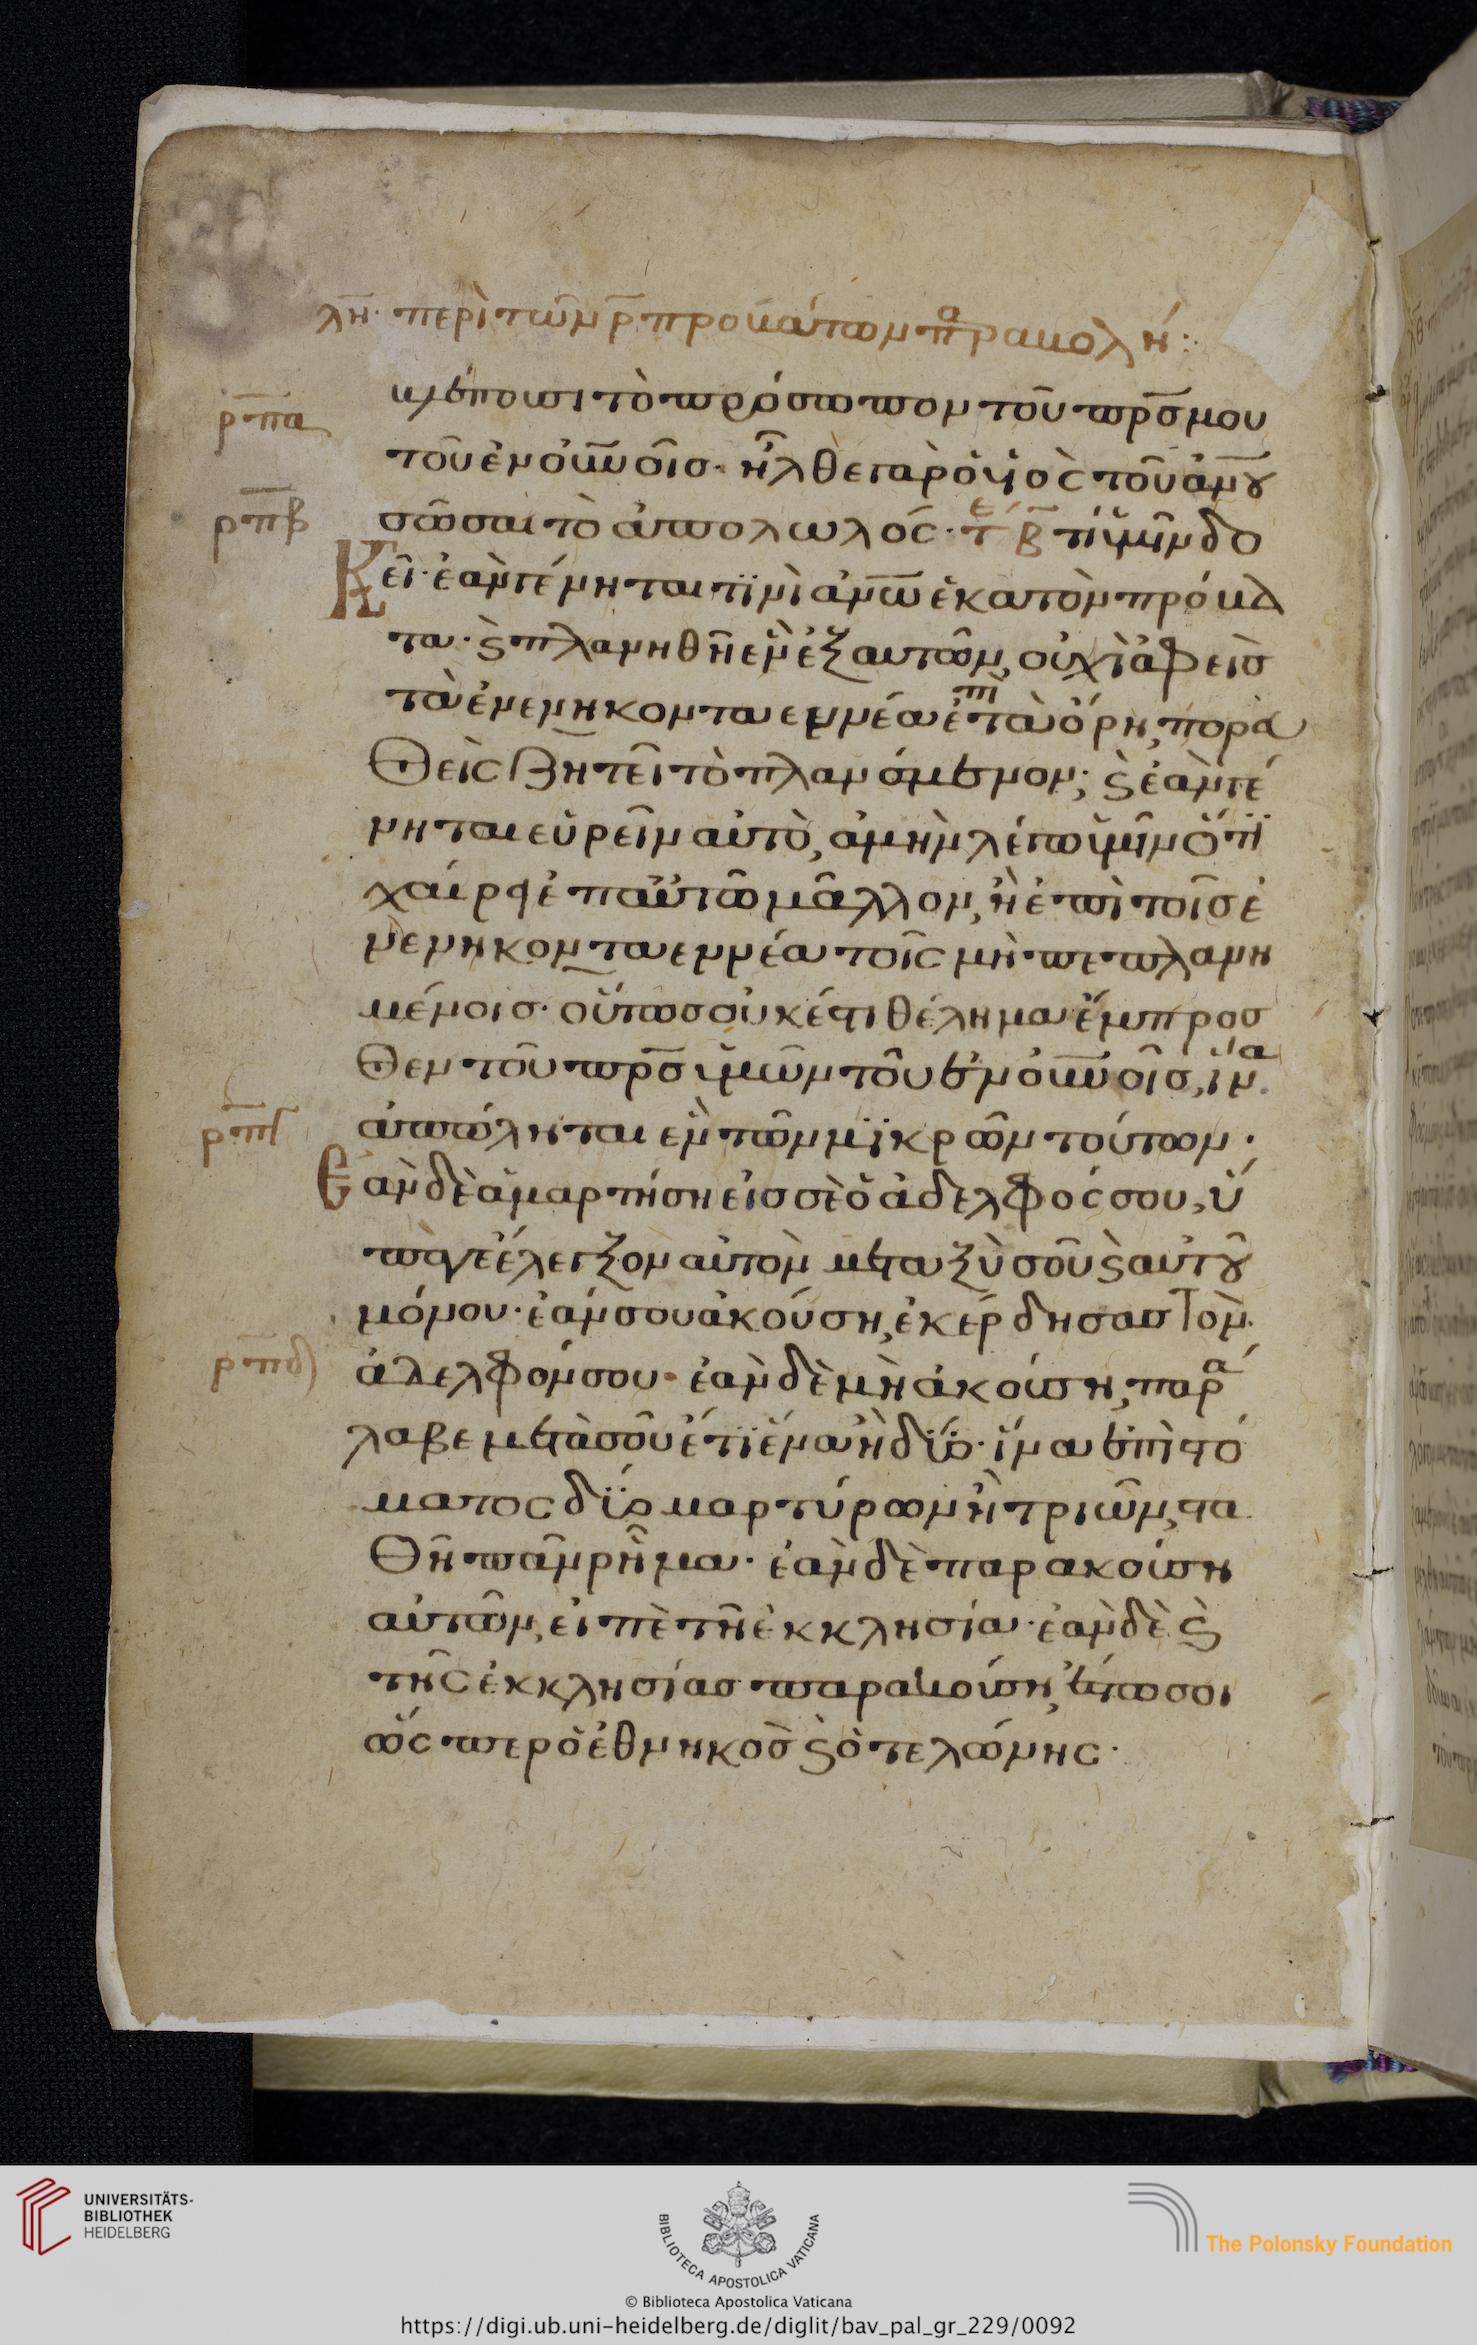 λη· περὶ τῶν ρ προβάτων παραβολή:
ρπα
βλέπουσι τὸ πρόσωπον τοῦ πρσ μου
τοῦ ἐν οὐνοῖσ· ἦλθε γὰρ ὁ υἱὸς τοῦ ἀνου
ρπβ
σῶσαι τὸ ἀπολωλός· τί ὑμῖν δο
κεῖ· ἐὰν γένηται τϊνὶ ἀνω ἑκατὸν πρόβα
τα· ϗ πλανηθῆ ἓν ἐξ αυτῶν, οὐχὶ ἀφεὶσ
τὰ ἐνενηκονταεννέα ἐπὶ τὰ ὄρη, πορευ
θεὶς ζητεῖ τὸ πλανόμενον; ϗ ἐὰν γέ
νηται εὑρεῖν αὐτὸ, ἀμὴν λέγω ὑμῖν ὅτϊ
χαίρει ἐπ αὐτῶ μᾶλλον, ἢ ἐπὶ τοῖσ ἐ
νενηκονταεννέα τοῖς μὴ πεπλανη
μένοισ· οὕτωσ οὐκ έστι θέλημα ἔμπροσ
θεν τοῦ πρσ ὑμῶν τοῦ ἐν οὐνοῖσ, ἵνα
ρπγ
ἀπόληται εἷν τῶν μϊκρῶν τούτων·
Ἐὰν δὲ ἁμαρτήση εἰσ σὲ ὁ ἀδελφός σου, ὕ
παγε ἔλεγξον αὐτὸν μεταξὺ σοῦ ϗ αὐτοῦ
μόνου· ἐάν σου ἀκούση, ἐκέρδησασ τὸν
ρπδ
ἀδελφόν σου· ἐὰν δὲ μὴ ἀκούση, παρά
λαβε μετὰ σοῦ ἔτϊ ἕνα ἢ δύο· ἵνα ἐπὶ στό
ματος δύο μαρτύρων ἢ τριῶν, στα
θῆ πᾶν ρῆμα· ἐὰν δὲ παρακούση
αὐτῶν, εἰπὲ τῆ ἐκκλησία· ἐὰν δὲ ϗ
τῆς ἐκκλησίασ παρακούση, ἔστω σοι
ὥς περ ὁ ἐθνηκὸσ ϗ ὁ τελώνης·
UNIVERSITÄTS-
BIBLIOTHEK
HEIDELBERG
BIBLIOTECA APOSTOLICA VATICANA
The Polonsky Foundation
© Biblioteca Apostolica Vaticana
https://digi.ub.uni-heidelberg.de/diglit/bav_pal_gr_229/0092